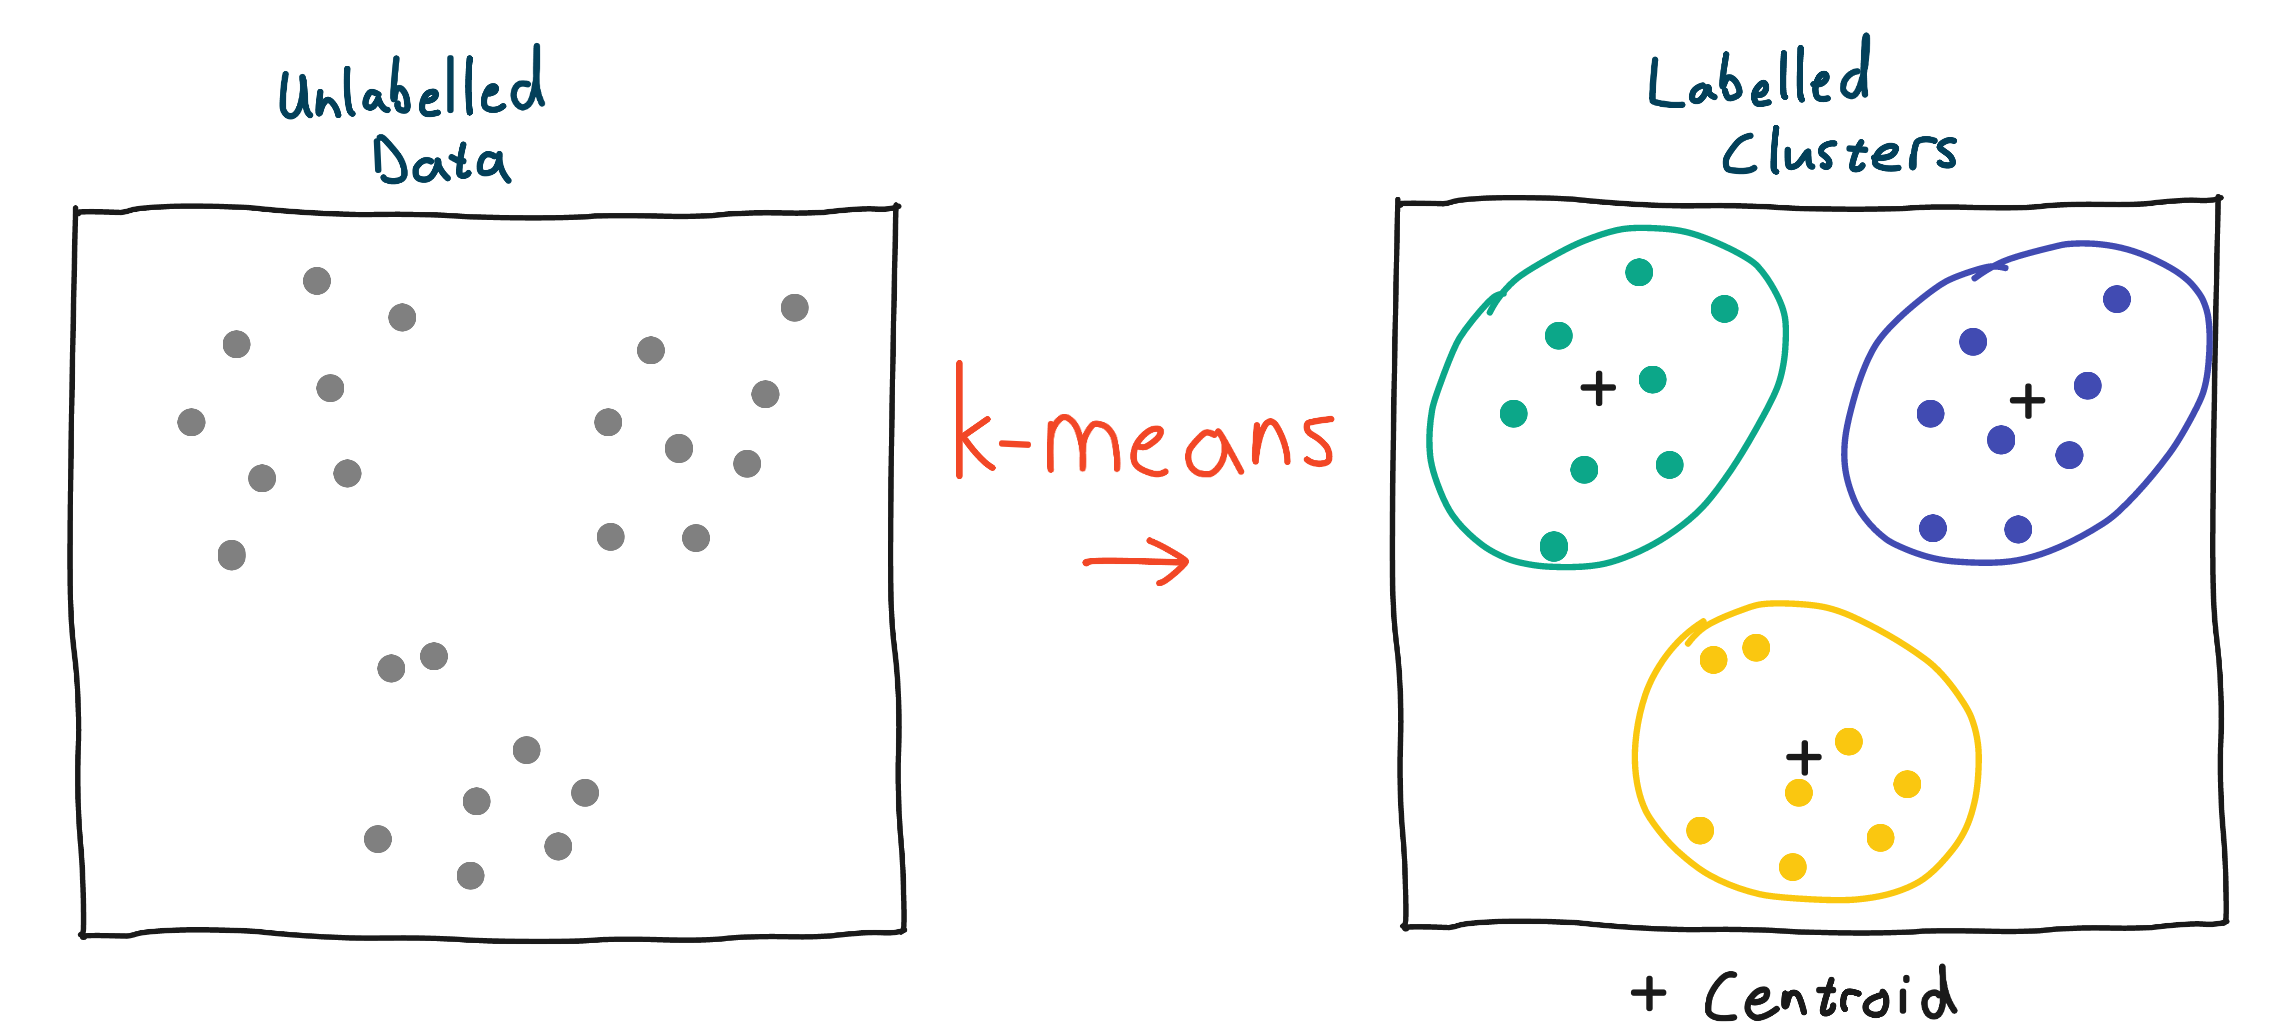 Unlabelled
Data
k-means
Labelled
Clusters
+ Centroid